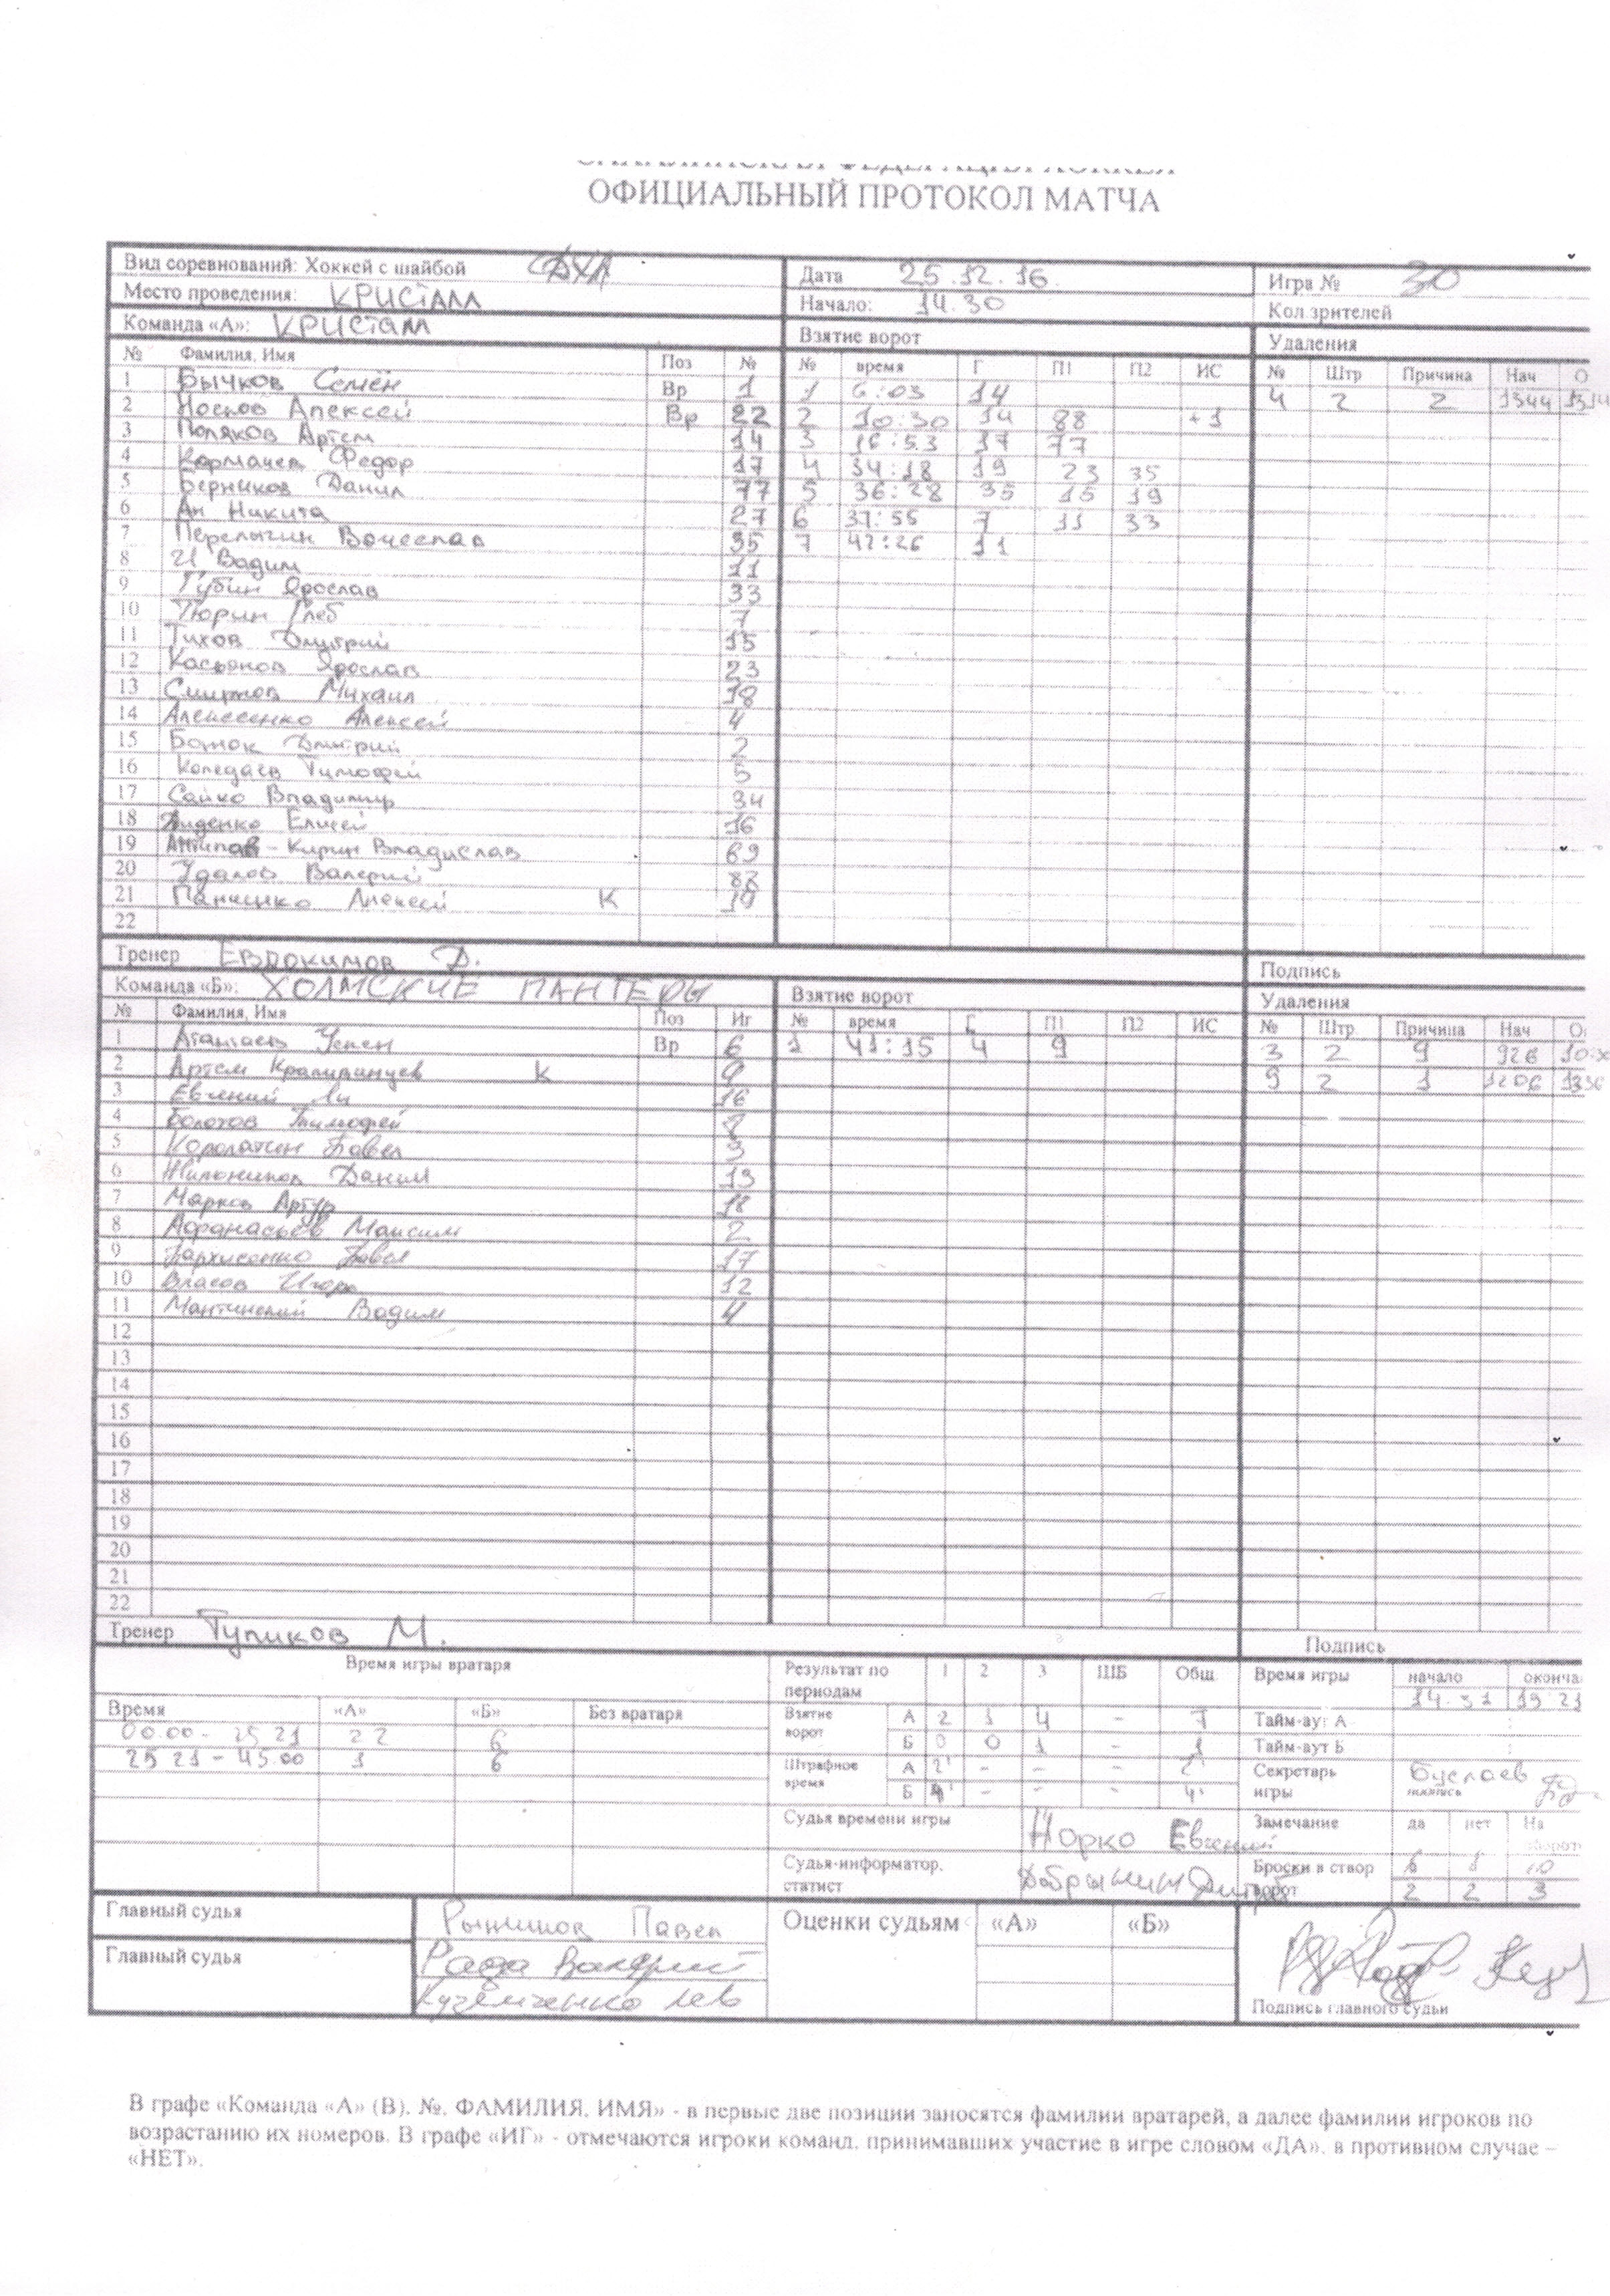 ОФИЦИАЛЬНЫЙ ПРОТОКОЛ МАТЧА
Вид соревнований: Хоккей с шайбой ДХЛ Дата 25.12.16 Игра № 30
Место проведения: КРИСТАЛЛ Начало: 14.30 Кол.зрителей
Команда «А»: КРИСТАЛЛ Взятие ворот Удаления
№ Фамилия, Имя Поз № № время Г П1 П2 ИС № Штр Причина Нач О
1 Бычков Семён Вр 1 1 6:03 14 4 2 2 1344
2 Носков Алексей Вр 22 2 10:30 14 88 +1
3 Поляков Артем 14 3 16:53 17 77
4 Федор 17 4 34:18 19 23 35
5 Берников Данил 77 5 36:28 35 15 19
6 Ан Никита 27 6 37:55 7 11 33
7 Перелыгин Вячеслав 35 7 42:26 11
8 И Вадим 11
9 Губин Ярослав 33
10 Тюрин Глеб 7
11 Тихов Дмитрий 15
12 Касьянов Ярослав 23
13 Смирнов Михаил 18
14 Алексеенко Алексей 4
15 Дмитрий 2
16 Коледаев Тимофей 5
17 Сайко Владимир 34
18 Елисей 16
19 Антипов-Кирин Владислав 69
20 Удалов Валерий
21 Панченко Алексей К 19
22
Тренер Евдокимов Д. Подпись
Команда «Б»: ХОЛМСКИЕ ПАНТЕРЫ Взятие ворот Удаления
№ Фамилия, Имя Поз Иг № время Г П1 П2 ИС № Штр Причина Нач
1 Вр 6 1 41:15 4 9 3 2 9 926
2 Артем К 9 9 2 1 1206
3 Евгений Ли 16
4 Болотов Тимофей
5 Павел 3
6 Данил 13
7 Марков Артур 18
8 Афанасьев Максим 2
9 Пархоменко Павел 17
10 Власов Игорь 12
11 Вадим 4
12
13
14
15
16
17
18
19
20
21
22
Тренер Тупиков М. Подпись
Время игры вратаря Результат по периодам 1 2 3 ШБ Общ Время игры начало оконча
14.31
Время «А» «Б» Без вратаря Взятие ворот А 2 1 4 - 7 Тайм-аут А
00.00 - 25 21 22 6 Б 0 0 1 - 1 Тайм-аут Б
25 21 - 45.00 1 6 Штрафное время А 2' - - - 2' Секретарь игры Буслаев
подпись
Б 4' - - - 4'
Судья времени игры Норко Евгений Замечание да нет На
Судья-информатор, статист Добрынин Броски в створ ворот
2 2 3
Главный судья Рыжиков Павел Оценки судьям «А» «Б»
Главный судья Рада Валерий
Кузьмченко Лев Подпись главного судьи
В графе «Команда «А» (В). №. ФАМИЛИЯ. ИМЯ» - в первые две позиции заносятся фамилии вратарей, а далее фамилии игроков по
возрастанию их номеров. В графе «ИГ» - отмечаются игроки команд, принимавших участие в игре словом «ДА», в противном случае –
«НЕТ».